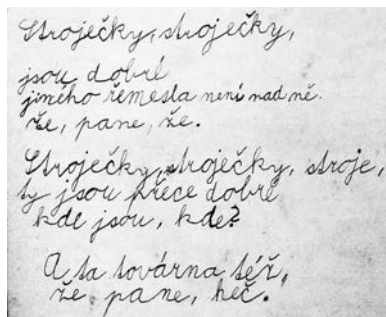 Stroječky, stroječky,
jsou dobré
jiného řemesla není nad ně.
že, pane, že.
Stroječky, stroječky, stroje,
ty jsou přece dobré
kde jsou, kde?
A ta továrna též,
že, pane, heč.